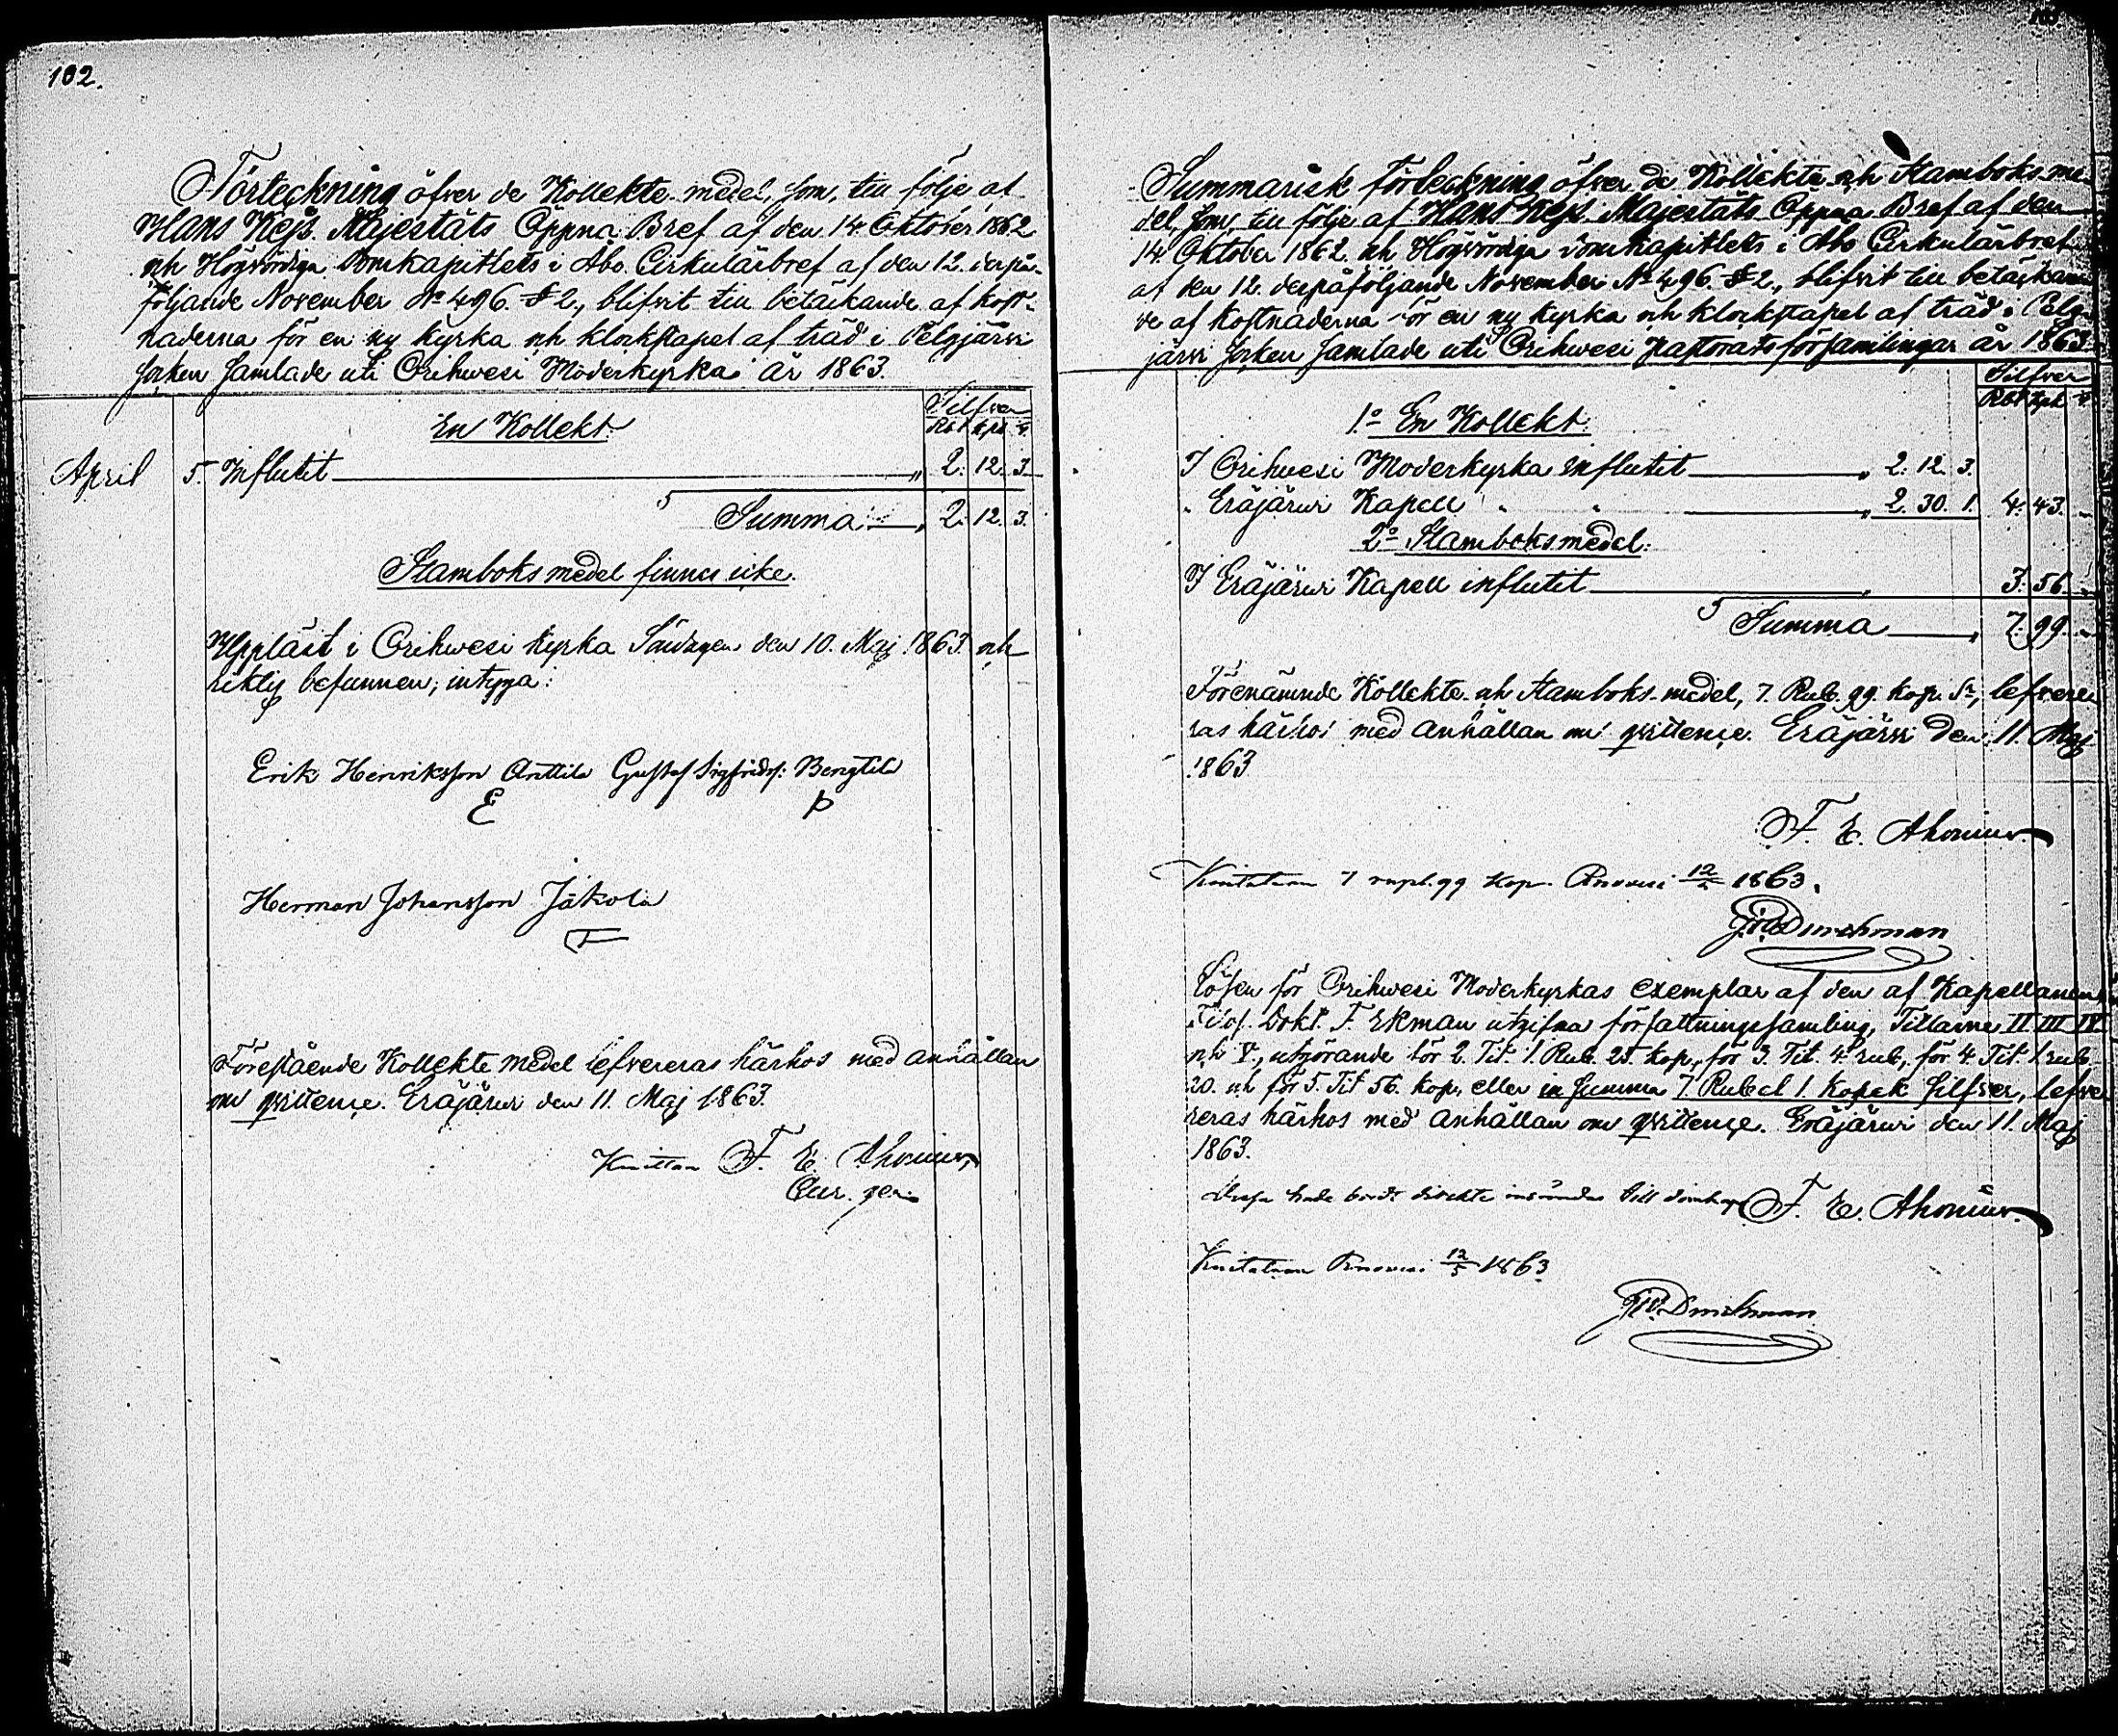 102.
Förteckning öfver de Kollekte-medel, som, till följe af
Hans Kejs. Majestäts Öppna Bref af den 14. Oktober 1862
och Högvördiga Domkapitlets i Åbo Cirkulärbref af den 12. derpå-
följande November No 496. § 2., blifvit till betäckande af kost-
naderna för en ny kyrka och klockstapel af träd i Pelgjärvi
socken samlade uti Orihwesi Moderkyrka år 1863.
Silfver
En Kollekt: Rbl kpk
April 5. Influtit „ 2. 12. 3.
Summa „ 2. 12. 3.
Stamboksmedel finnes icke.
Uppläst i Orihwesi kyrka Söndagen den 10. Maj 1863. och
riktig befunnen, intyga:
Erik Henriksson Anttila Gustaf Sigfridss: Bengtila
E P
Herman Johansson Jäkolä
Förestående Kollekte medel lefvereras härhos med anhållan
om qvittence. Eräjärwi den 11. Maj 1863.
F. E. Ahonius
Summarisk Förteckning öfver de Kollekte och Stamboks-me-
del, som, till följe af Hans Kejs. Majestäts Öppna Bref af den
14. Oktober 1862. och Högvördiga Domkapitlets i Åbo Cirkulärbref
af den 12. derpåföljande November No 496. § 2., blifvit till betäckan-
de af kostnaderna för en ny kyrka och klockstapel af träd i Pelg-
järvi socken samlade uti Orihwesi Pastorats församlingar år 1863.
Silfver
1o En Kollekt: Rbl kpk
I Orihwesi Moderkyrka influtit „ 2. 12. 3.
„ Eräjärwi Kapell „ „ „ 2. 30. 1. 4. 43. „
2o Stamboksmedel:
I Eräjärwi Kapell influtit „ 3. 56. „
Summa „ 7. 99. „
Förenämnde Kollekte- och Stamboks-medel, 7. Rub. 99. kop. Sr, lefvere-
ras härhos med anhållan om qvittence. Eräjärvi den 11. Maj
1863
F. E. Ahonius
7 rupl. 99 kop. 12/5 1863.
Lösen för Orihwesi Moderkyrkas exemplar af den af Kapellanen,
Filos. Dokt. F. Ekman utgifna författningssamling, Titlarne II III IV
och V., utgörande för 2. Tit. 1. Rub. 25. kop., för 3. Tit. 4. rub., för 4. Tit. 1. rub.
20. och för 5. Tit 56. kop., eller in summa 7. Rubel 1. Kopek silfver, lefve-
reras härhos med anhållan om qvittence. Eräjärwi den 11. Maj
1863.
hade bordt direkte insändas till domkap F. E. Ahonius
12/5 1863